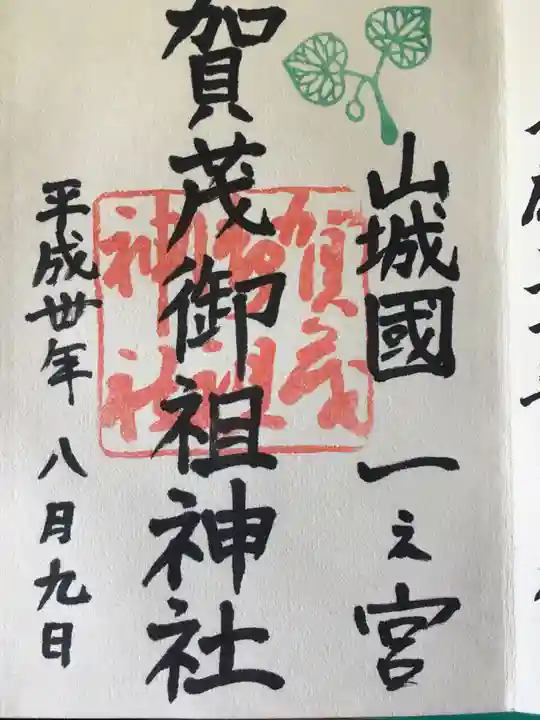 山城國一之宮
賀茂御祖神社
平成丗年八月九日
賀茂
御祖
神社